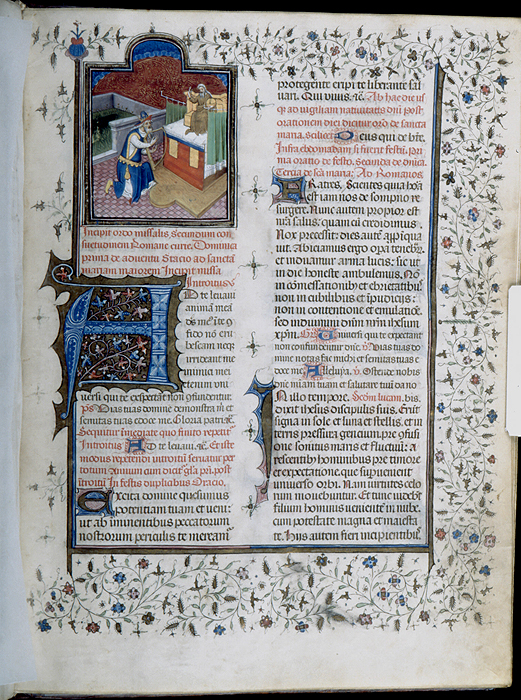 Incipit ordo missalis secundum con
suetudinem Romane curie. Dominica
prima de adventu Stacio ad sanctā
mariam maiorem Incipit missa.
Introitus
AD te levavi
animā mea
ds meꝰ ĩ te ɔ̄
fido nō eru
bescam neqꝫ
irrideant me
inimici mei
etenim uni
versi qui te expectāt nō ɔfundentur.
pꝭ Vias tuas domine demonstra m̄ et
semitas tuas edoce me. Gloria patri.
Sequitur immediate quo finito repetit̃
Introitus AD te levavi. ac̄. Et iste
modus repetendi introitū servatur per
totum annum cum dicit̃ gl̄a pr̄i. post
ītroitū In festis duplicibus Oracio.
Excita domine quesumus
potentiam tuam et veni:
ut ab iminentibus peccatorum
nostrorum periculis te meream̃
protegente eripi te liberante sal
vari. Qui vivis. ac̄. Ab hac die usꝫ
qꝫ ad vigiliam nativitatis dn̄i post
orationem diei dicitur or̄o de sancta
maria. Deus qui de btē.
Infra ebdomadam si fuerit festū. pri
ma oratio de festo. Secunda de dn̄ica.
Tercia de scā maria. Ad Romanos.
Fratres. Scientes quia hora
est iam nos de sompno re
surgere. Nunc autem propior est
nr̄a salus. quam cū credidimus.
Nox precessit dies autē appīqua
vit. Abiciamus ergo opa tenebrꝝ
et induamur arma lucis: sic ut
in die honeste ambulemus. Nō
in comessationibꝫ et ebrietatibus
non in cubilibus et ipudiciis:
non in contentione et emulatōe.
sed induimini dn̄m nr̄m ihesum
xp̄m. Gr̄. Universi qui te expectant
non confundentur dn̄e. v̄. Vias tuas do
mine notas fac michi et semitas tuas e
doce me. Alleluya. v̄. Ostende nobis
dn̄e m̄iam tuam et salutare tuū da no
In illo tempore. Scdm̄ lucam. bis.
Dixit ihesus discipulis suis. Erūt
signa in sole et luna et stellis. et in
terris pressura gencium. pre ɔfusi
one sonitus maris et fluctuū: a
rescentibꝫ hominibus pre timore
et expectatione que supervenient
universo orbi. Nam virtutes celo
rum movebuntur. Et tunc videbūt
filium hominis venientē in nube.
cum potestate magna et maiesta
te. Hiis autem fieri incipientibus